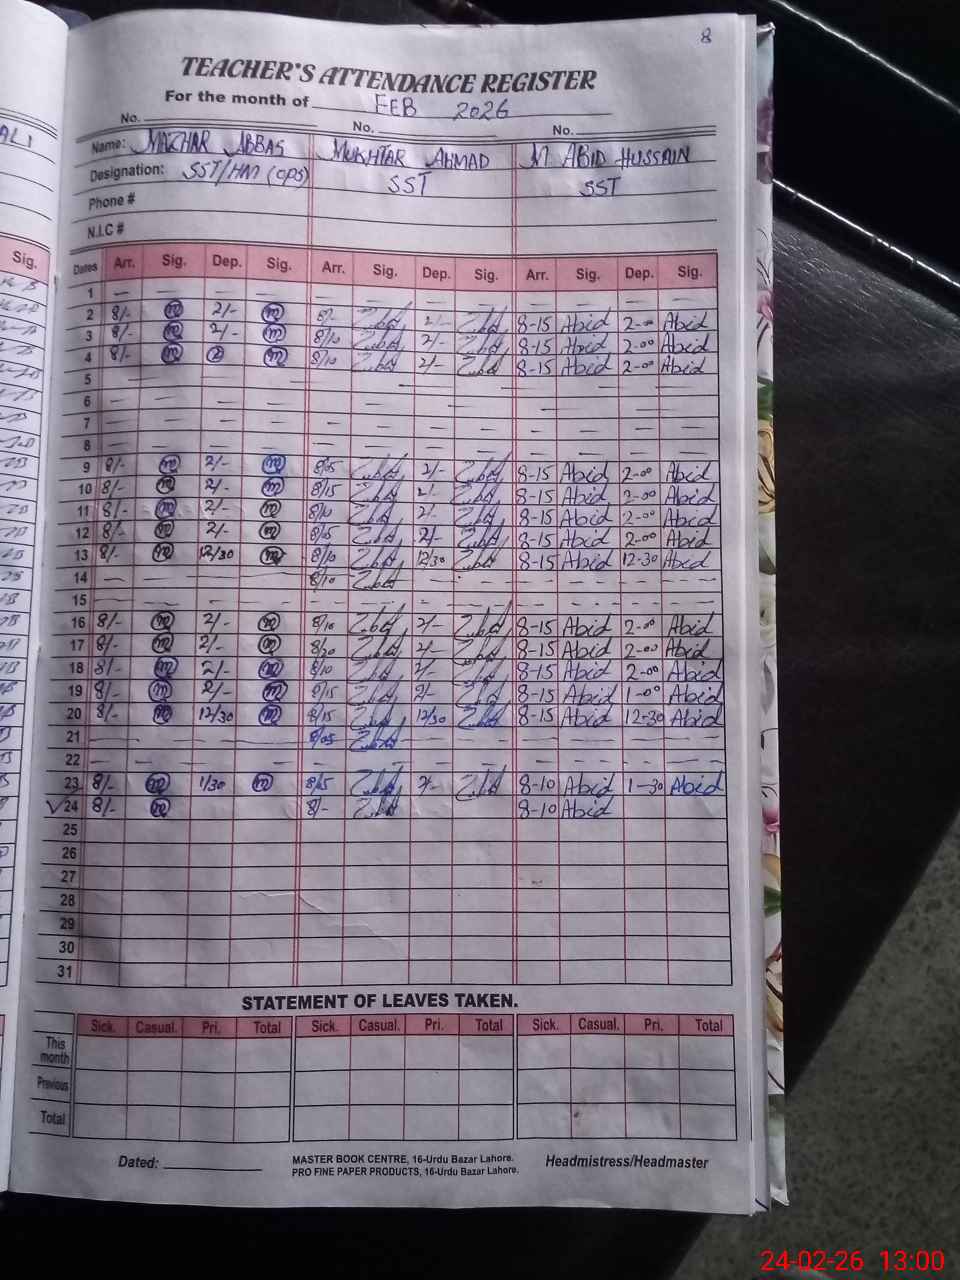 8
TEACHER'S ATTENDANCE REGISTER
For the month of FEB 2026
No. No. No.
Name: MAZHAR ABBAS MUKHTAR AHMAD M. ABID HUSSAIN
Designation: SST/HM (OPS) SST SST
Phone #
N.I.C #
Sig.
Dates Arr. Sig. Dep. Sig. Arr. Sig. Dep. Sig. Arr. Sig. Dep. Sig.
1 — — — — — — — — — — — —
2 8/- m 2/- m 8/- 2/- 8-15 Abid 2-00 Abid
3 8/- m 2/- m 8/10 2/- 8-15 Abid 2-00 Abid
4 8/- m m 8/10 2/- 8-15 Abid 2-00 Abid
5 — — — — — — — — — — — —
6 — — — — — — — — — — — —
7 — — — — — — — — — — — —
8 — — — — — — — — — — — —
9 8/- m 2/- m 8/05 2/- 8-15 Abid 2-00 Abid
10 8/- m 2/- m 8/15 2/- 8-15 Abid 2-00 Abid
11 8/- m 2/- m 8/10 2/- 8-15 Abid 2-00 Abid
12 8/- m 2/- m 8/05 2/- 8-15 Abid 2-00 Abid
13 8/- m 12/30 m 8/10 12/30 8-15 Abid 12-30 Abid
14 — — — — 8/10 — — — — — —
15 — — — — — — — — — — — —
16 8/- m 2/- m 8/10 2/- 8-15 Abid 2-00 Abid
17 8/- m 2/- m 8/20 2/- 8-15 Abid 2-00 Abid
18 8/- m 2/- m 8/10 2/- 8-15 Abid 2-00 Abid
19 8/- m 2/- m 8/15 2/- 8-15 Abid 1-00 Abid
20 8/- m 12/30 m 8/15 12/30 8-15 Abid 12-30 Abid
21 — — — — 8/05 — — — — — —
22 — — — — — — — — — — — —
23 8/- m 1/30 m 8/15 2/- 8-10 Abid 1-30 Abid
✓24 8/- m 8/- 8-10 Abid
25
26
27
28
29
30
31
STATEMENT OF LEAVES TAKEN.
Sick. Casual. Pri. Total Sick. Casual. Pri. Total Sick. Casual. Pri. Total
This month
Previous
Total
Dated: MASTER BOOK CENTRE, 16-Urdu Bazar Lahore. Headmistress/Headmaster
PRO FINE PAPER PRODUCTS, 16-Urdu Bazar Lahore.
24-02-26 13:00